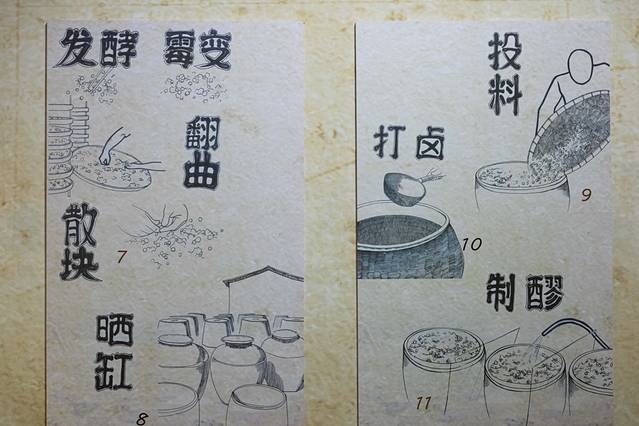 发酵 霉变
翻曲
散块
7
晒缸
8
投料
9
打卤
10
制醪
11